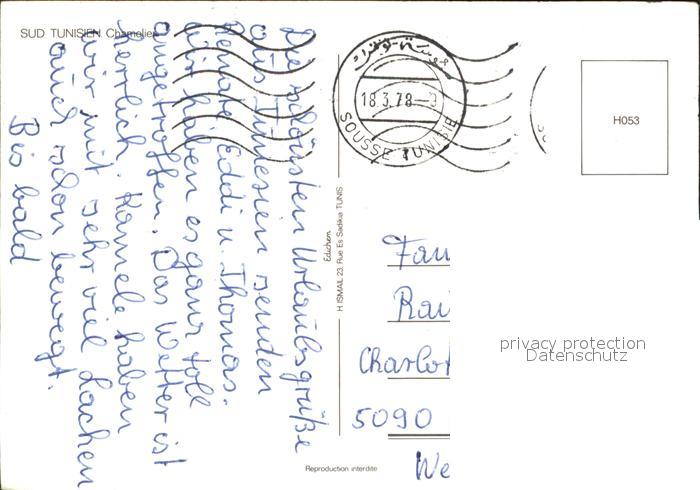 SUD TUNISIEN Chamelier
Die schönsten Urlaubsgrüße
aus Tunesien senden
Renate Eddi u. Thomas.
Wir haben es ganz toll
angetroffen. Das Wetter ist
herrlich. Kamele haben
wir mit sehr viel Lachen
auch schon bewegt.
Bis bald
Edichem
H ISMAIL 23, Rue Es Sadikia TUNIS
Reproduction interdite
18.3.78
SOUSSE TUNISIE
H053
Fam
Rai
Charlot
5090
We
privacy protection
Datenschutz